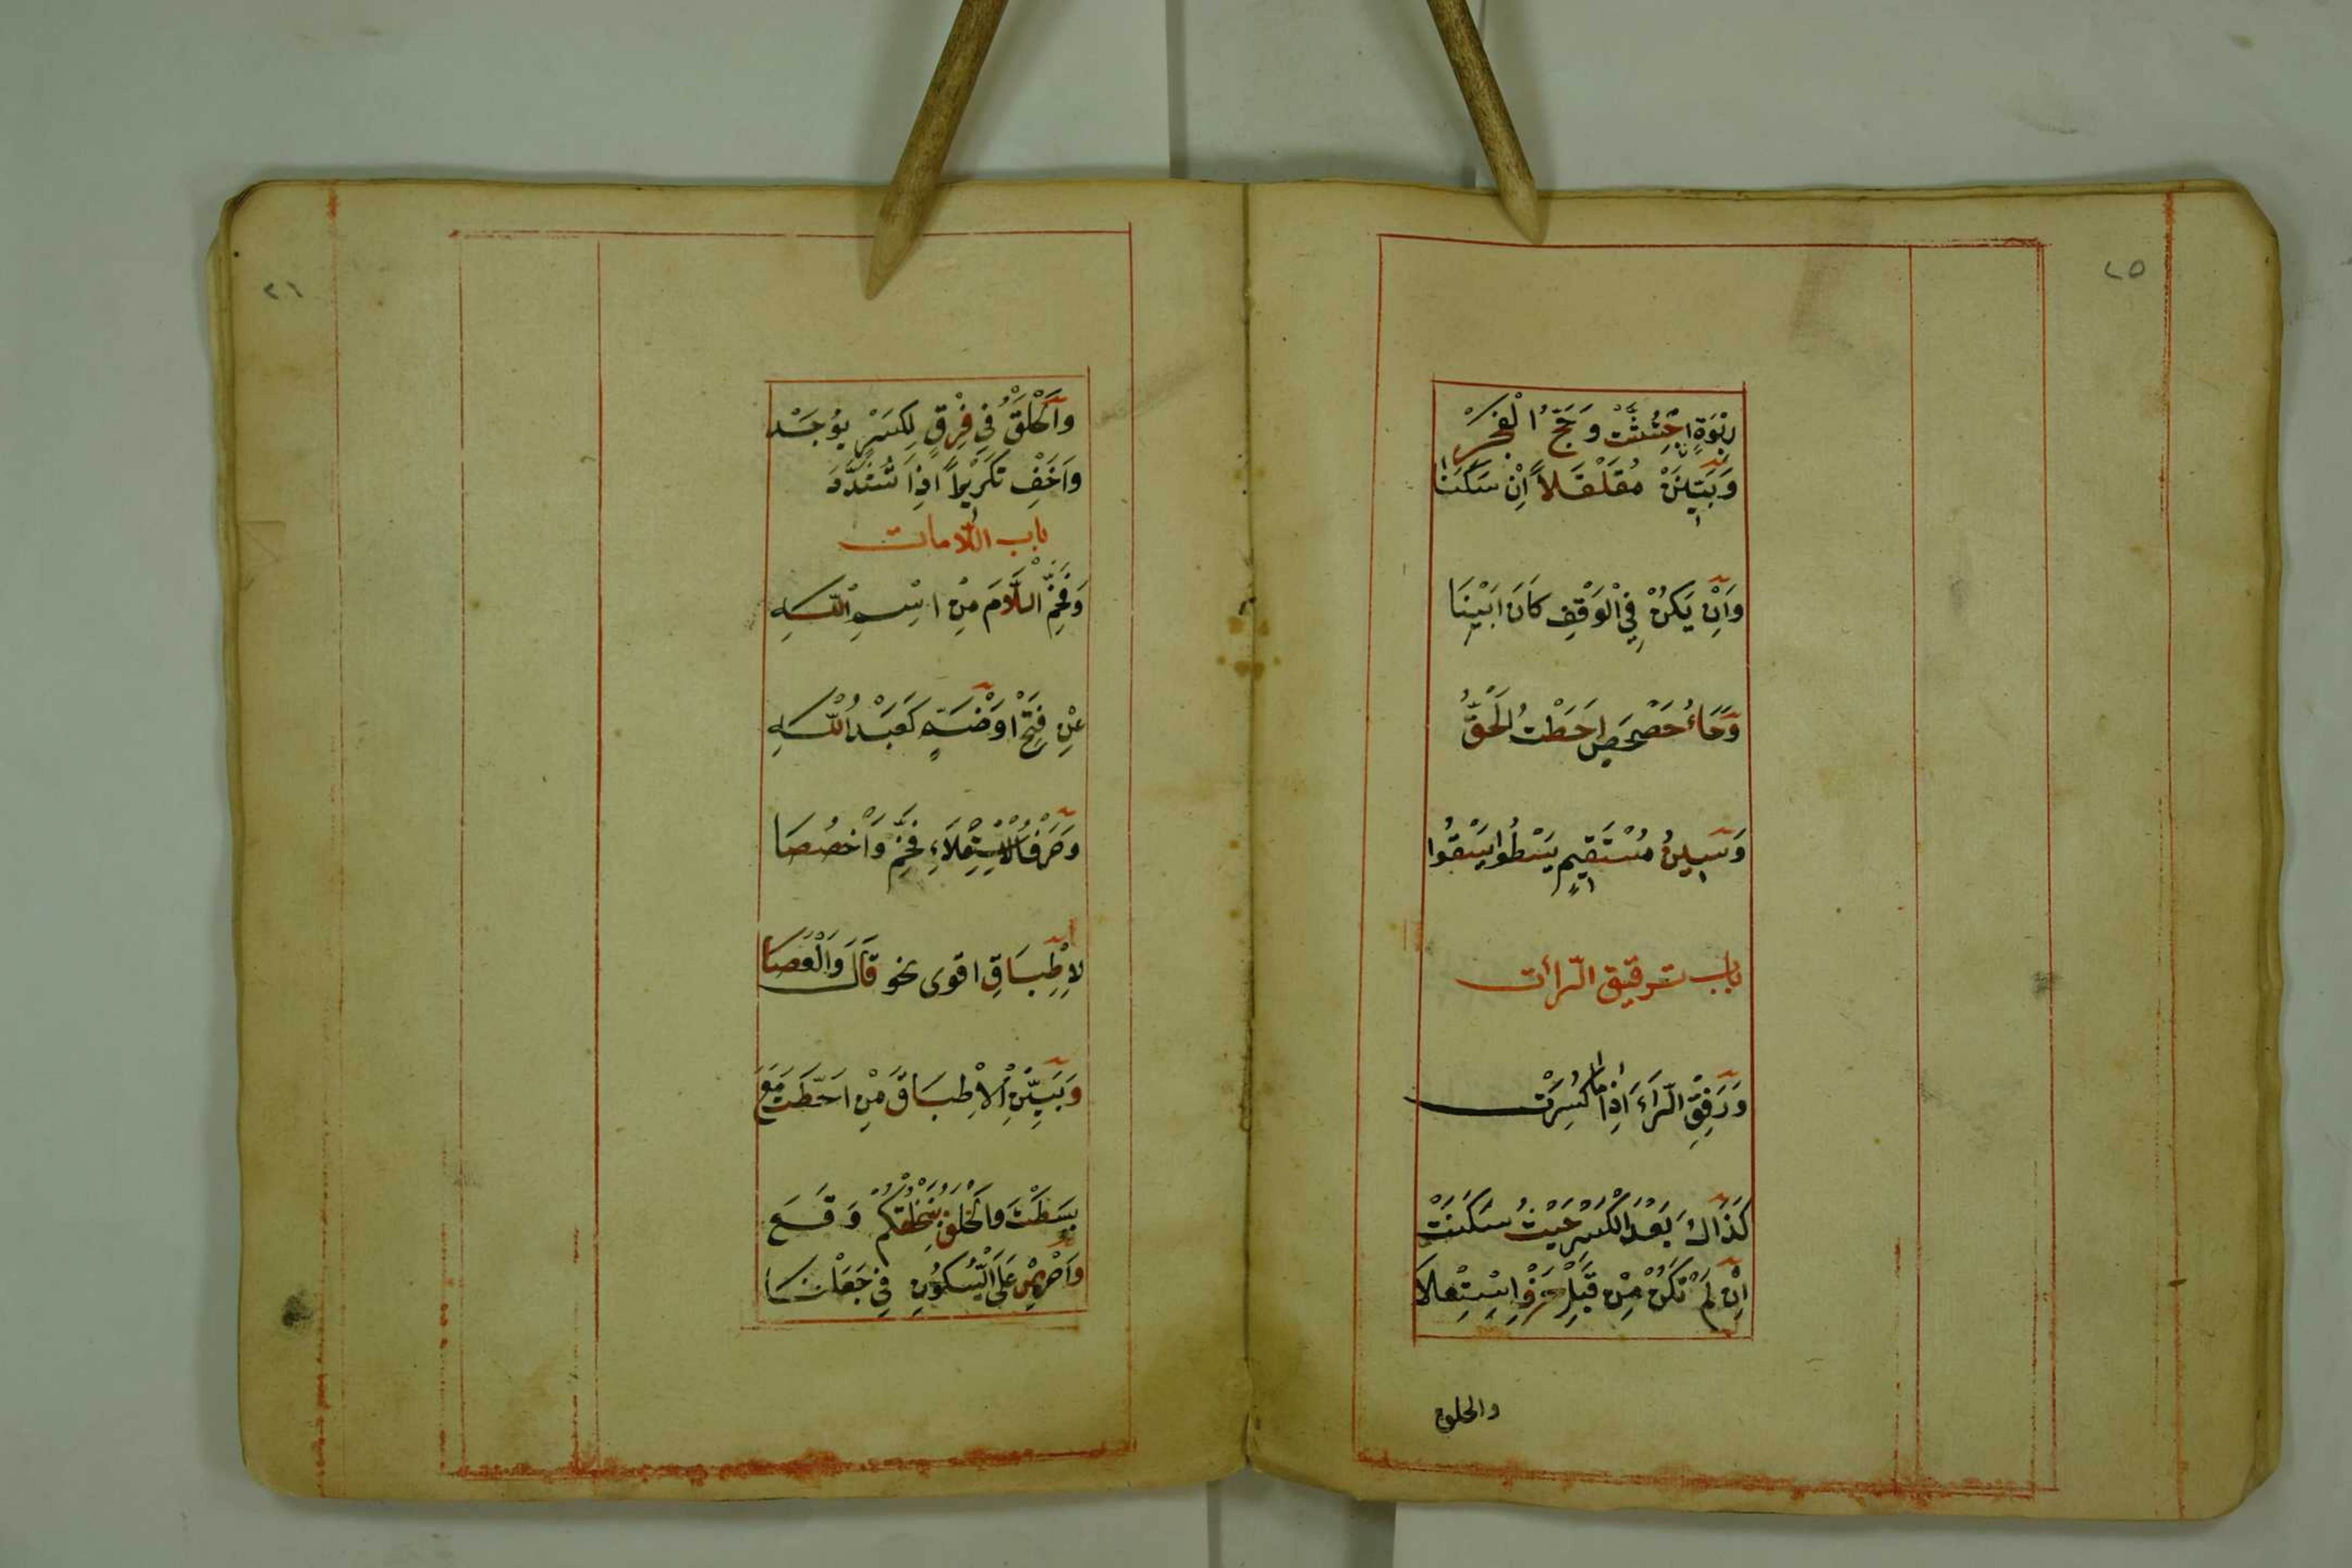 ٢٥
رَبْوَةٍ اجْتُثَّتْ وَحَجِّ الْفَجْرِ
وَبَيِّنَنْ مُقَلْقَلاً اِنْ سَكَنَا
وَاِنْ يَكُنْ فِي الْوَقْفِ كَانَ اَبْيَنَا
وَحَاءُ حَصْحَصَ اَحَطْتُ الْحَقُّ
وَسِينُ مُسْتَقِيمِ يَسْطُوا يَسْقُوا
باب ترقيق الرّاأت
وَرَقِّقِ الرَّاءَ اِذَا مَا كُسِرَتْ
كَذَاكَ بَعْدَ الْكَسْرِ حَيْثُ سَكَنَتْ
اِنْ لَمْ تَكُنْ مِنْ قَبْلِ حَرْفِ اسْتِعْلاَ
والخلف
٢٦
وَالْخُلْفُ فِي فِرْقٍ لِكَسْرٍ يُوجَدْ
وَاَخْفِ تَكْرِيْراً اِذَا تُشَدَّدْ
باب اللّامات
وَفَخِّمِ اللَّامَ مِنِ اسْمِ اللّٰهِ
عَنْ فَتْحٍ اَوْ ضَمٍّ كَعَبْدُ اللّٰهِ
وَحَرْفَ الْاِسْتِعْلَاءِ فَخِّمْ وَاخْصُصَا
لاِطْبَاقِ اقوى نحو قَالَ وَالْعَصَا
وَبَيِّنِ الْاِطْبَاقَ مِنْ اَحَطْتُ مَعَ
بَسَطْتَ وَالْخُلْفُ بِنَخْلُقْكُمْ وَقَعَ
وَاحْرِصْ عَلَى السُّكُونِ فِي جَعَلْنَا